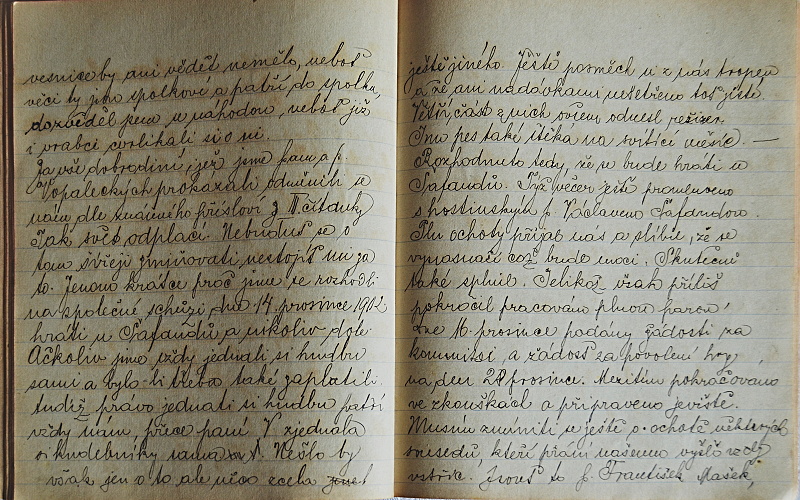 vesnice by ani věděti nemělo, neboť
věci ty jsou spolkové a patří do spolku,
dozvěděl jsem se náhodou, neboť již
i vrabci cvrlikali si o ní.
Za vše dobrodiní, jež jsme pam a p.
Vopaleckých prokázali odměnili se
nám dle známého přísloví z II. čítanky
Tak svět odplací. Nebudu se o
tom šířeji zmiňovati, nestojí mi za
to. Jenom krátce proč jsme se rozhodli
na společné schůzi dne 14. prosince 1912
hráti u Šafandů, a nikoliv dole.
Ačkoliv jsme vždy jednali si hudbu
sami a bylo-li třeba také zaplatili
tudíž právo jednati si hudbu patří
vždy nám, přece paní V. zjednala
si hudebníky sama. Nešlo by
však jen o to, ale něco zcela
ještě jiného. Ještě posměch si z nás tropen
a že ani nadávkami nešetřeno toť jisté.
Větší část z nich ovšem odnesl režiser.
Inu pes také štěká na svítící měsíc. —
Rozhodnuto tedy, že se bude hráti u
Šafandů. Týž večer ještě promluveno
s hostinským p. Václavem Šafandou.
Pln ochoty přijal nás a slíbil, že se
vynasnaží což bude moci. Skutečně
také splnil. Jelikož však příliš
pokročil pracováno plnou parou:
Dne 16. prosince podány žádosti za
komisi, a žádost za povolení hry
na den 28 prosince. Mezitím pokračováno
ve zkouškách a připraveno jeviště.
Musím zmíniti se ještě o ochotě některých
sousedů, kteří přání našemu vyšli vždy
vstříc. Jsouť to p. František Mašek,